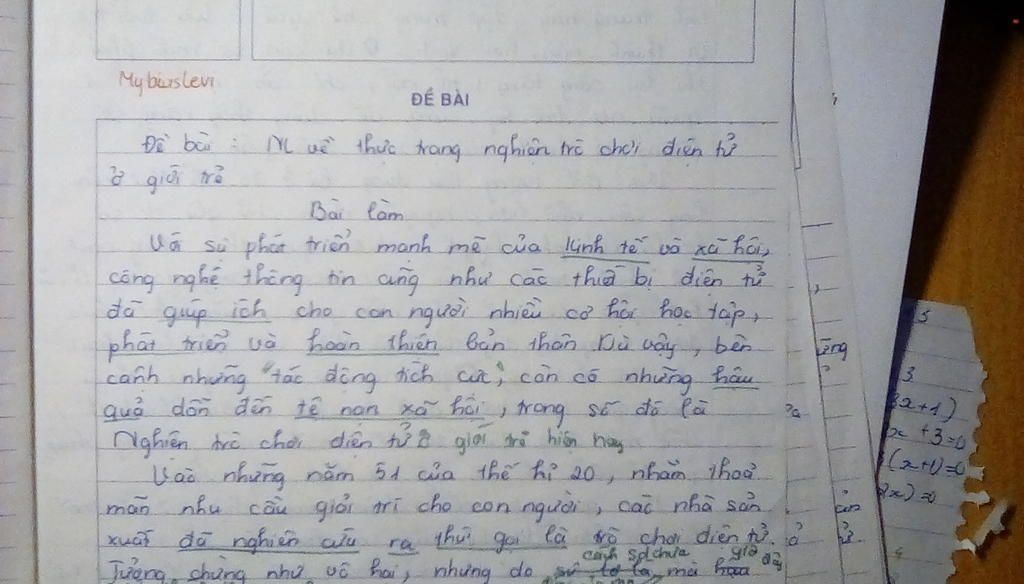 Mybiaslevi
ĐỀ BÀI
Đề bài : NL về thực trạng nghiện trò chơi điện tử
ở giới trẻ
Bài làm
Với sự phát triển mạnh mẽ của kinh tế và xã hội,
công nghệ thông tin cũng như các thiết bị điện tử
đã giúp ích cho con người nhiều cơ hội học tập,
phát triển và hoàn thiện bản thân. Dù vậy, bên
cạnh những "tác động tích cực", còn có những hậu
quả dẫn đến tệ nạn xã hội, trong số đó là
Nghiện trò chơi điện tử ở giới trẻ hiện nay
Vào những năm 51 của thế kỉ 20, nhằm thoả
mãn nhu cầu giải trí cho con người, các nhà sản
xuất đã nghiên cứu ra thứ gọi là trò chơi điện tử.
cảnh sd chưa
Tưởng chừng như vô hại, nhưng do mà
5
3
3x+1)
x + 3=0
(x+1)=0
2x)=0